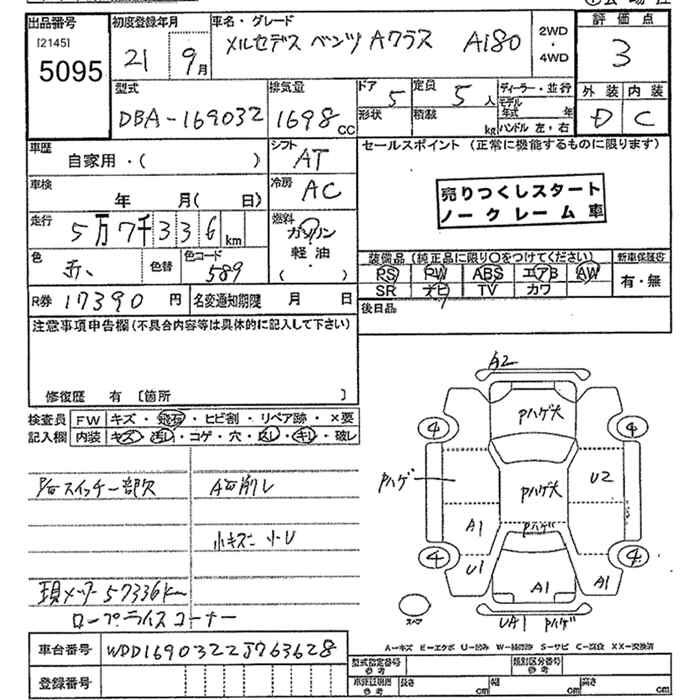 出品番号 初度登録年月 車名・グレード 2WD・4WD 評価点
[2145]
5095
21 9月 メルセデス ベンツ Aクラス A180 3
型式 排気量 ドア 定員 ディーラー・並行 外装 内装
DBA-169032 1698CC 5 5人 モデル年式 年 D C
形状 積載 kg ハンドル 左・右
車歴 シフト セールスポイント (正常に機能するものに限ります)
自家用・( ) AT
車検 冷房 売りつくしスタート
年 月( 日) AC ノークレーム車
走行 燃料
5万7千336km ガソリン
軽油
( )
色 色替 色コード 装備品 (純正品に限り〇をつけてください) 新車保証書
589 PS PW ABS エアB AW 有・無
SR ナビ TV カワ
R券 17390 円 名変通知期限 月 日 後日品
注意事項申告欄(不具合内容等は具体的に記入して下さい)
修復歴 有 [箇所 ]
検査員 FW キズ・飛石・ヒビ割・リペア跡・×要
記入欄 内装 キズ・汚し・コゲ・穴・ 破レ
A2
Pハゲ大
4 4
Pハゲ Pハゲ大 U2
A1 Pハゲ
4 4
U1 A1 A1
UA1 Pハゲ
スペア
スイッチ一部欠
小キズ 小U
現メーター57336km
ロープライスコーナー
A−キズ E−エクボ U−凹み S−サビ C−腐食 XX−交換済
車台番号 WDD1690322J763628 型式指定番号 参考 類別区分番号 参考
登録番号 参考 長さ cm 幅 cm 高さ cm